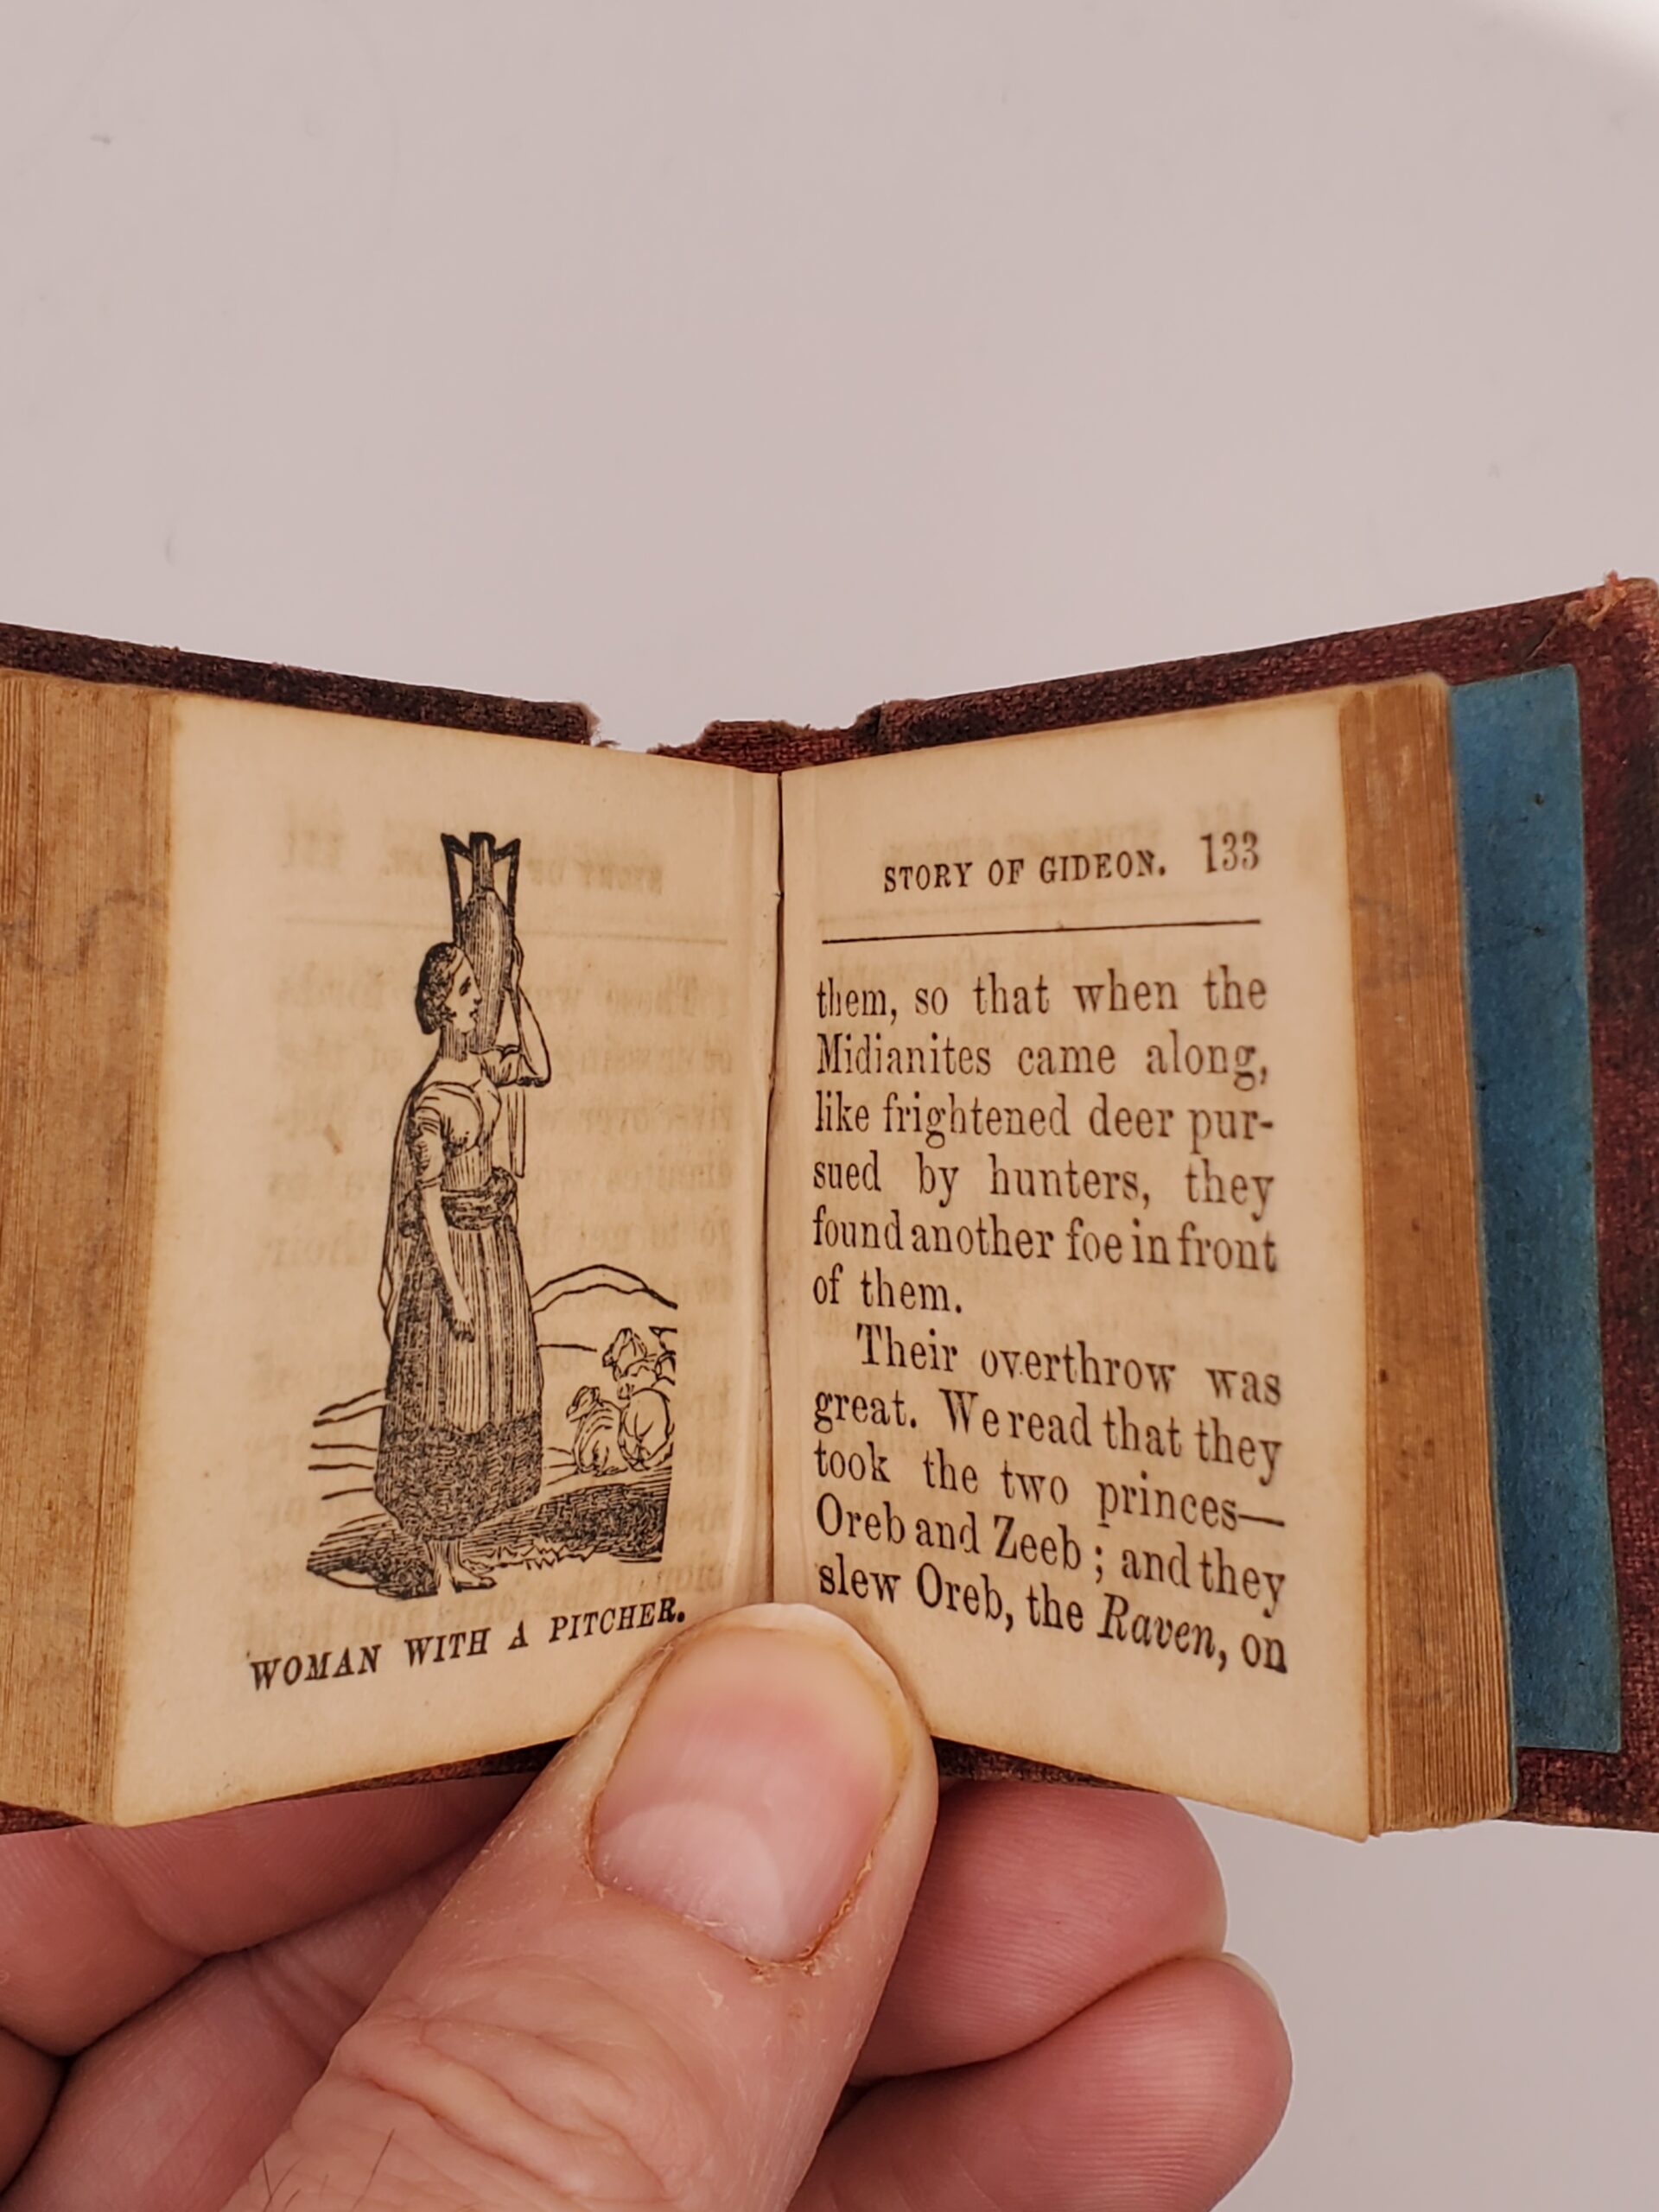 WOMAN WITH A PITCHER.
STORY OF GIDEON. 133
them, so that when the
Midianites came along,
like frightened deer pur-
sued by hunters, they
found another foe in front
of them.
Their overthrow was
great. We read that they
took the two princes—
Oreb and Zeeb; and they
slew Oreb, the Raven, on